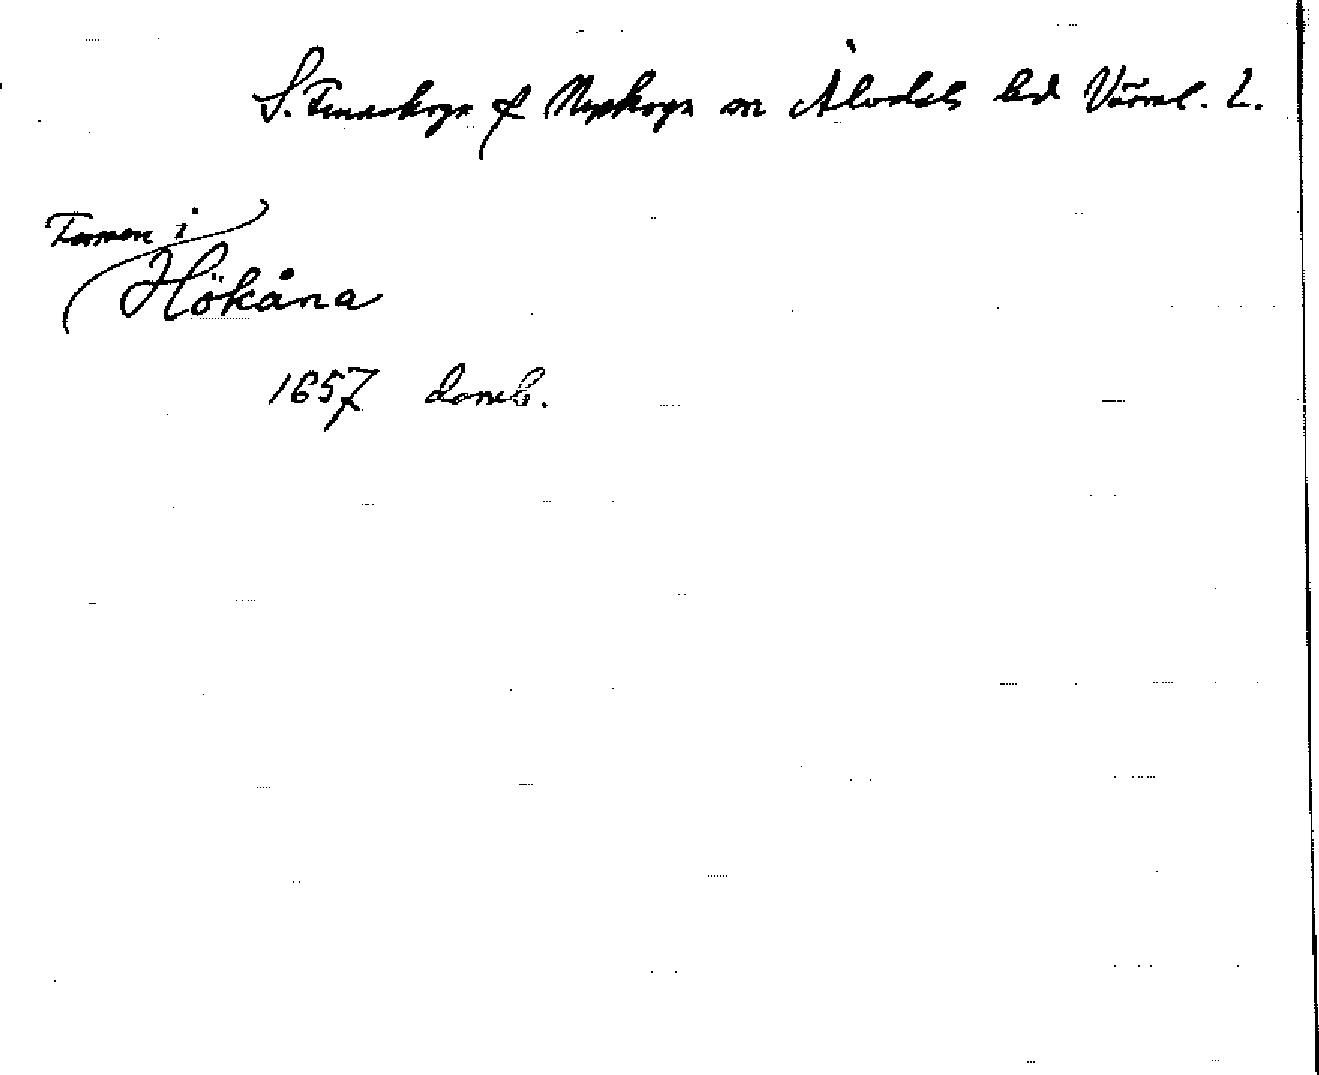 S. Finnskoga f. Nyskoga sn Älvdals hd Värml. L.
Finnen i
Hökåna
1657 domb.